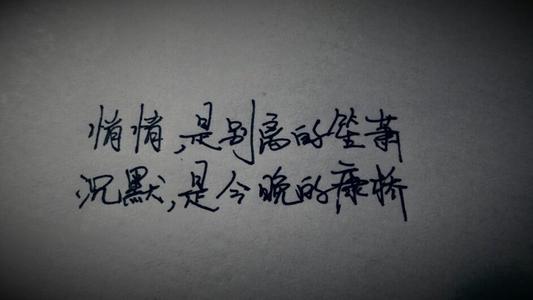 悄悄,是别离的笙萧
沉默,是今晚的康桥